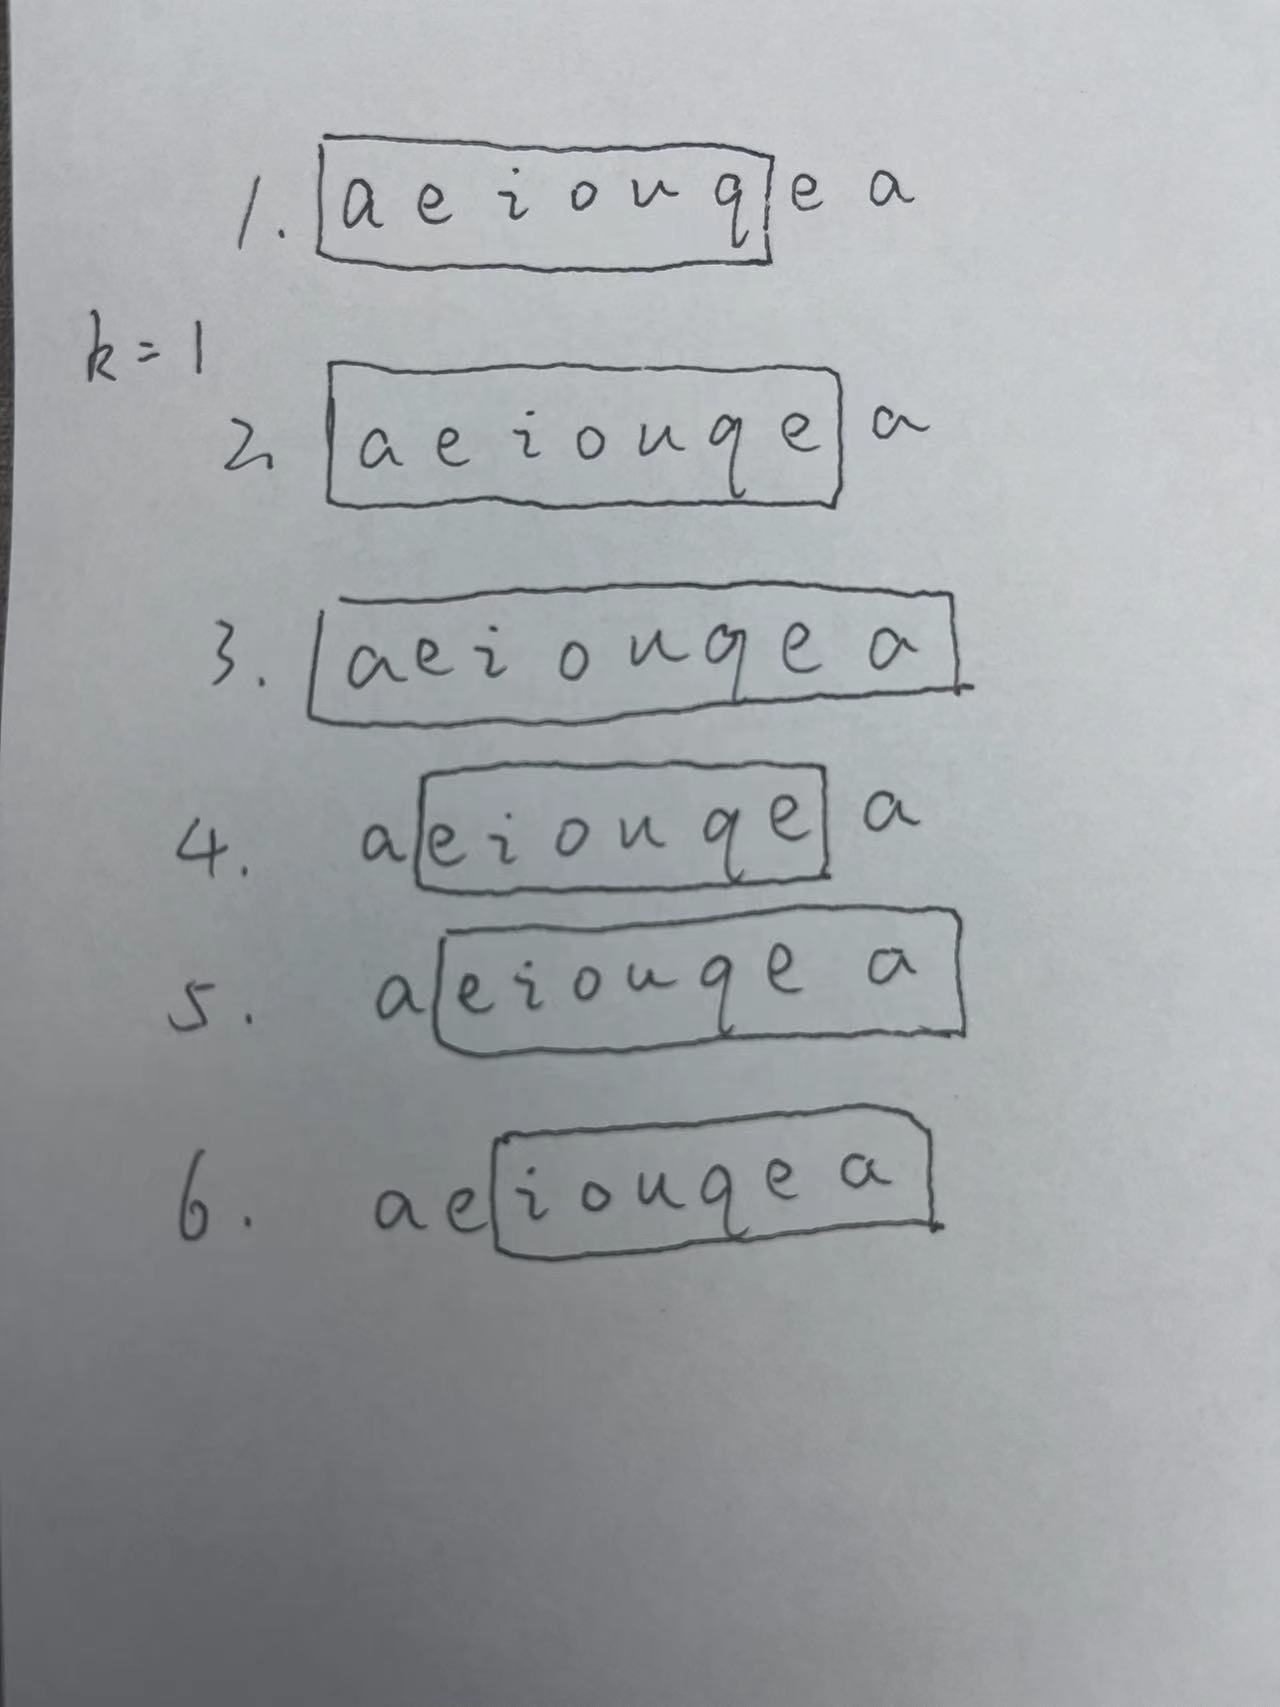 1. a e i o u q e a
k = 1
2. a e i o u q e a
3. a e i o u q e a
4. a e i o u q e a
5. a e i o u q e a
6. a e i o u q e a